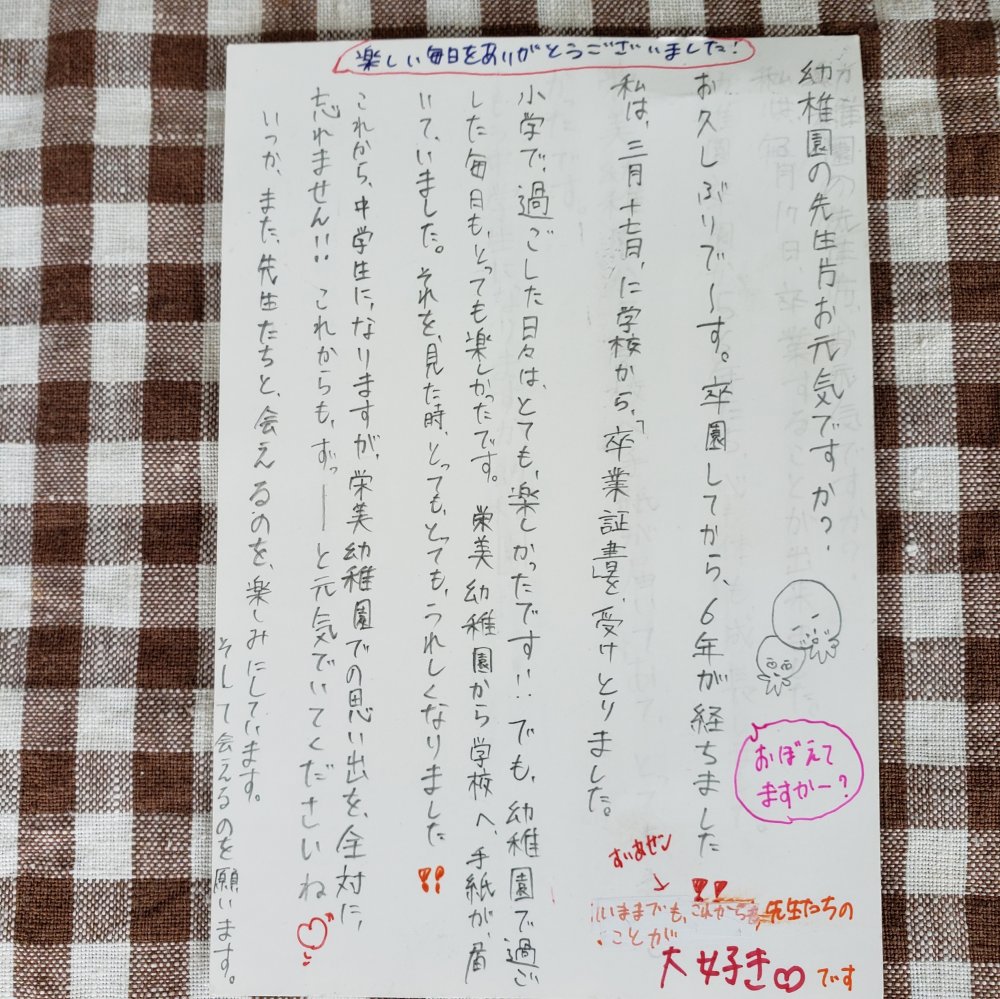 楽しい毎日をありがとうございました!
幼稚園の先生片お元気ですか?
お久しぶりで〜す。卒園してから、6年が経ちました!!
私は、三月十七日、に学校から、「卒業証書」を、受けとりました。
小学で、過ごした日々は、とても、楽しかったです!! でも、幼稚園で過ご
した毎日も、とっても楽しかったです。栄美幼稚園から学校へ、手紙が、届
いて、いました。それを、見た時、とっても、とっても、うれしくなりました!!
これから、中学生に、なりますが、栄美幼稚園での思い出を、全対に、
忘れません!! これからも、ずっ──と元気でいてくださいね♡
いつか、また、先生たちと、会えるのを、楽しみにしています。
そして会えるのを願います。
おぼえて
ますかー?
すいません
いままでも、これからも、先生たちの
ことが
大好き♡です